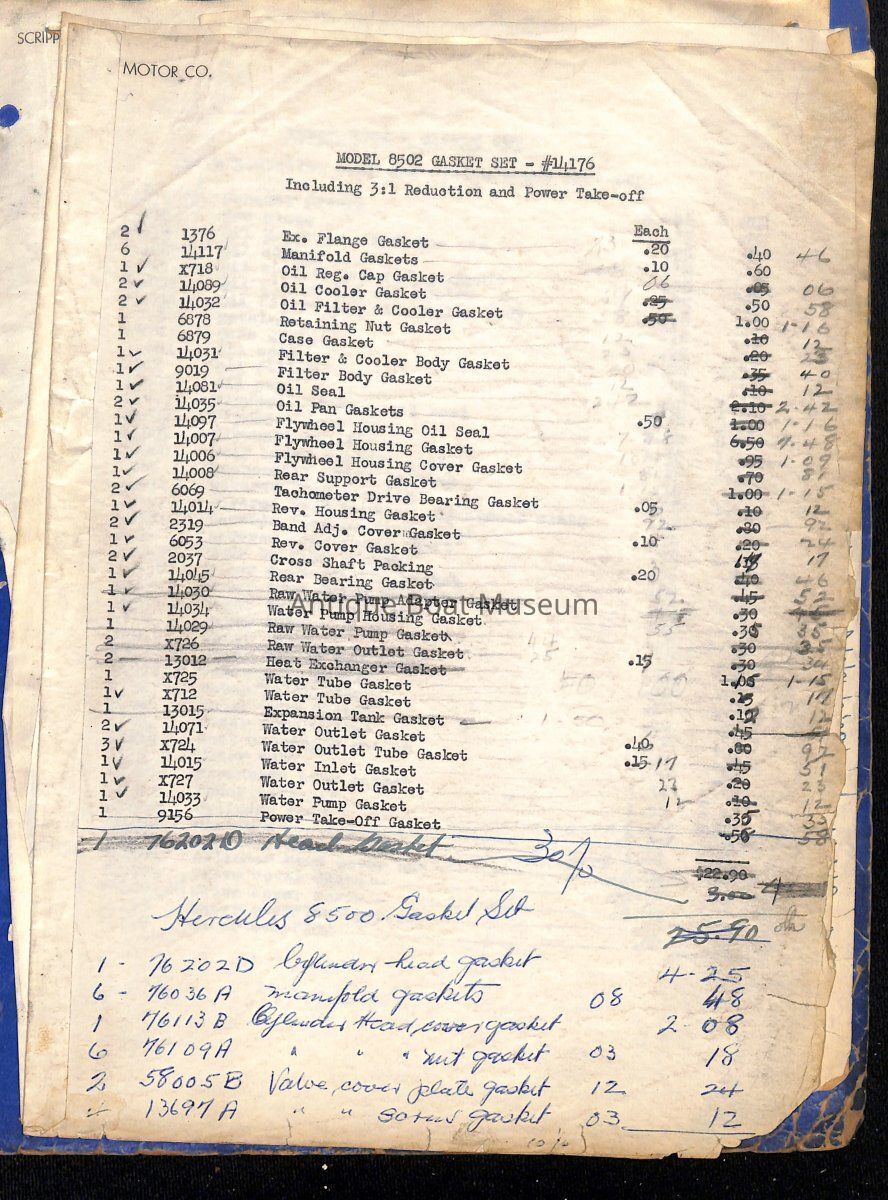 SCRIPP
MOTOR CO.
MODEL 8502 GASKET SET - #14176
Including 3:1 Reduction and Power Take-off
Each
2 ✓ 1376 Ex. Flange Gasket .20 .40 46
6 14117 Manifold Gaskets .10 .60
1 ✓ X718 Oil Reg. Cap Gasket 06 .05 06
2 ✓ 14089 Oil Cooler Gasket .25 .50 58
2 ✓ 14032 Oil Filter & Cooler Gasket .50 1.00 1-16
1 6878 Retaining Nut Gasket .10 12
1 6879 Case Gasket .20 23
1 ✓ 14031 Filter & Cooler Body Gasket .35 40
1 ✓ 9019 Filter Body Gasket .10 12
1 ✓ 14081 Oil Seal 2.10 2-42
2 ✓ 14035 Oil Pan Gaskets .50 1.00 1-16
1 ✓ 14097 Flywheel Housing Oil Seal 6.50 7-48
1 ✓ 14007 Flywheel Housing Gasket .95 1-09
1 ✓ 14006 Flywheel Housing Cover Gasket .70 81
1 ✓ 14008 Rear Support Gasket 1.00 1-15
2 ✓ 6069 Tachometer Drive Bearing Gasket .05 .10 12
1 ✓ 14014 Rev. Housing Gasket .80 92
2 ✓ 2319 Band Adj. Cover Gasket .10 .20 24
1 ✓ 6053 Rev. Cover Gasket 17
2 ✓ 2037 Cross Shaft Packing .20 .40 46
1 ✓ 14045 Rear Bearing Gasket .45 52
1 ✓ 14030 Raw Water Pump Adapter Gasket .30
1 ✓ 14034 Water Pump Housing Gasket .30
1 14029 Raw Water Pump Gasket .30
2 X726 Raw Water Outlet Gasket .15 .30 34
2 13012 Heat Exchanger Gasket 1-15
1 X725 Water Tube Gasket .15 17
1 ✓ X712 Water Tube Gasket .10 12
1 13015 Expansion Tank Gasket 1-50 .45
2 ✓ 14071 Water Outlet Gasket .40 .80 92
3 ✓ X724 Water Outlet Tube Gasket .15 17 .45 51
1 ✓ 14015 Water Inlet Gasket 23 .20 23
1 ✓ X727 Water Outlet Gasket 12 .10 12
1 ✓ 14033 Water Pump Gasket .30
1 9156 Power Take-Off Gasket .50 58
1 76202D Head Gasket 30%
$22.90
3.00
25.90
Hercules 8500 Gasket Set
1 - 76202D Cylinder head gasket 4-25
6 - 76036A manifold gaskets 08 48
1 76113B Cylinder Head cover gasket 2-08
6 76109A " " " nut gasket 03 18
2 58005B Valve cover plate gasket 12 24
4 13697A " " screw gasket 03 12
Antique Boat Museum